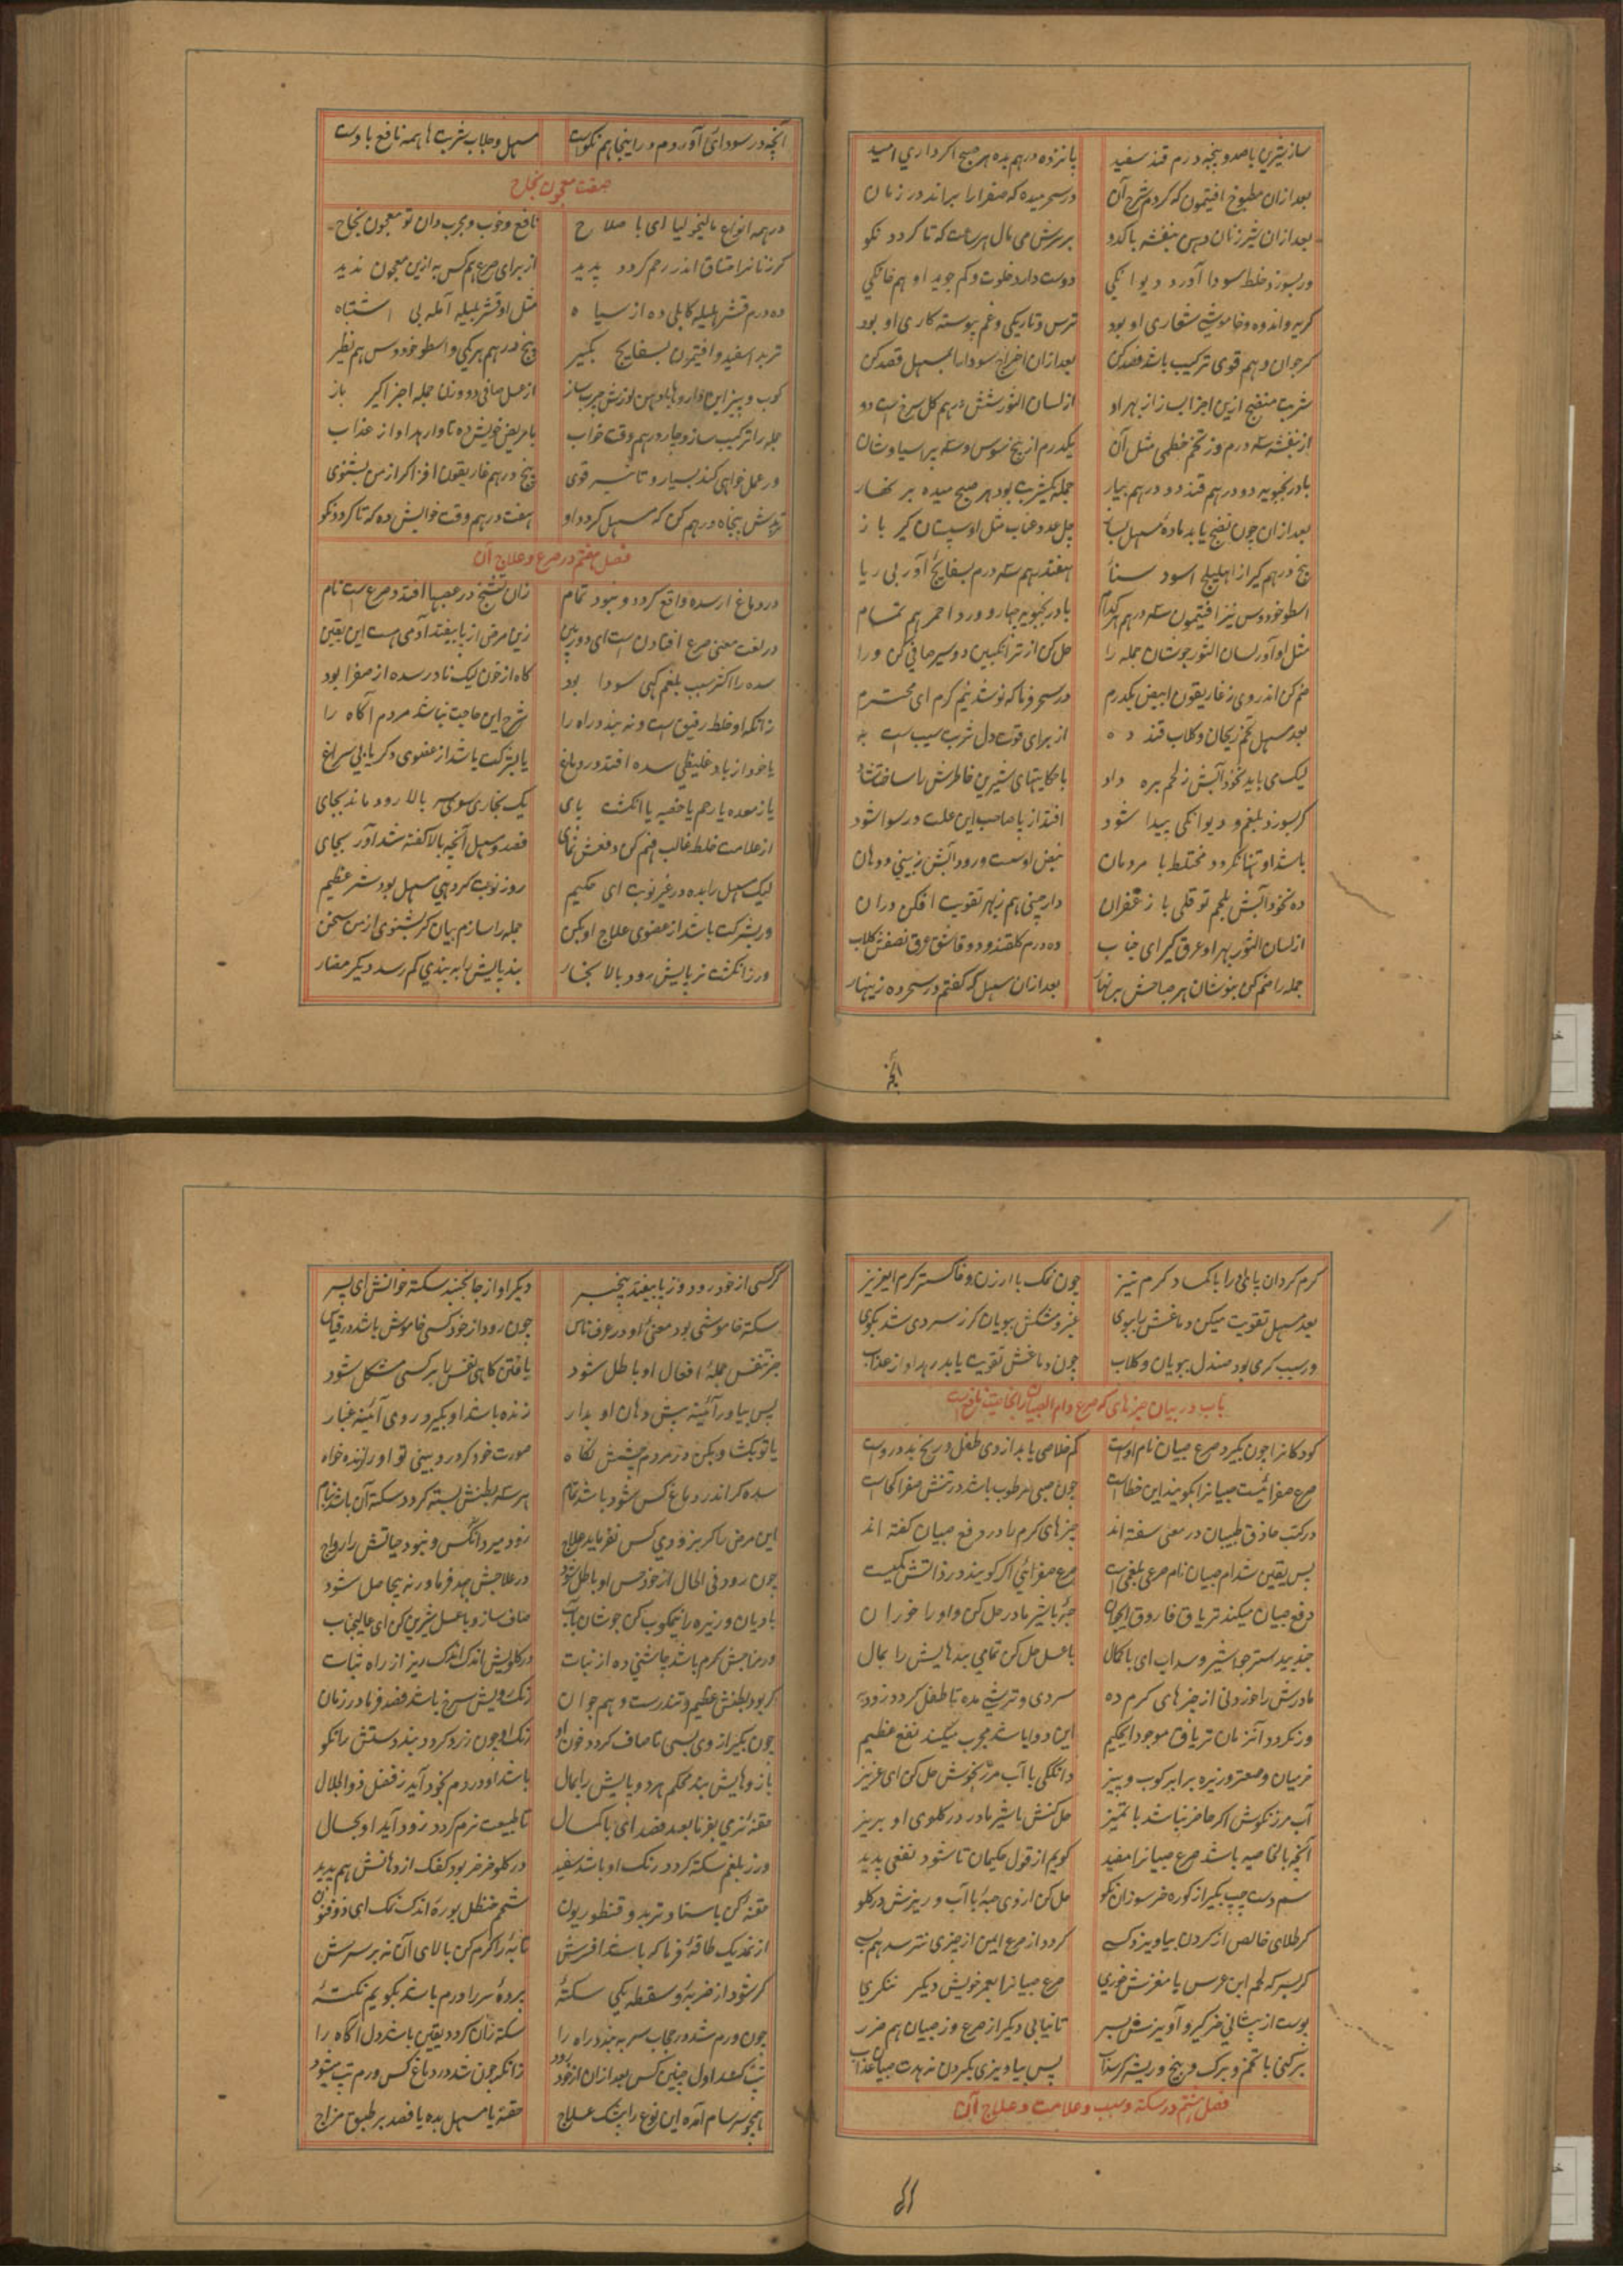 ساز شیرین با صد و پنجه درم قند سفید پانزده درهم بده هر صبح اگر داری امید
بعد ازان مطبوخ افتیمون که کردم شرح آن در سحر میده که صفرا را براند در زمان
بعد ازان شیر زنان و دهن بنفشه با کدو بر سرش می مال هر ساعت که تا گردد نکو
ور بسوزد خلط سودا آورد دیوانگی دوست دارد خلوت و کم جوید او هم خانگی
گریه و اندوه و خاموشی شعاری او بود ترس و تاریکی و غم پیوسته کاری او بود
گر جوان و هم قوی ترکیب باشد فصد کن بعد ازان اخراج سودا با مسهل قصد کن
شربت منضج ازین اجزا بساز از بهر او از لسان الثور شش درهم گل سرخ است دو
از بنفشه سه درم وز تخم خطمی مثل آن یکدرم از بیخ سوس و سه پرسیاوشان
بادرنجبویه دو درهم قند دو درهم بیار جمله یکشربت بود هر صبح میده بر نهار
بعد ازان چون نضج یابد ماده مسهل بساز چل عدد عناب مثل او سپستان گیر باز
پنج درهم گیر از اهلیلج اسود سنا هفتدرهم سه درم بسفایج آور بی ریا
اسطوخودوس نیز افتیمون سه درهم هر کدام بادرنجبویه چهار و ورد احمر هم تمام
مثل او آور لسان الثور جوشان جمله را حل کن از ترانگبین دو سیر صافی کن ورا
ضم کن اندر وی ز غاریقون ابیض یکدرم در سحر فرما که نوشد نیم گرم ای محترم
بعد مسهل تخم ریحان و گلاب قند ده از برای قوت دل شربت سیب است به
لیک می باید نخودآبش ز لحم بره داد با حکایتهای شیرین خاطرش را ساخت شاد
گر بسوزد بلغم و دیوانگی پیدا شود افتد از پا صاحب این علت و رسوا شود
باشد او تنها نگردد مختلط با مردمان نبض او سست و رود آبش ز بینی و دهان
ده نخودآبش بلحم تو قلی با زعفران دارچینی هم ز بهر تقویت افکن دران
از لسان الثور بهر او عرق گیر ای جناب ده درم گلقند و دو قاشق عرق نصفش گلاب
جمله را ضم کن بنوشان هر صباحش بر نهار بعد ازان مسهل که گفتم در سحر ده زینهار
آنچه در سودای آوردم در اینجا هم نکوست مسهل و جلاب شربت ها همه نافع باوست
صفت معجون نجاح
در همه انواع مالیخولیا ای با صلاح نافع و خوب و مجرب دان تو معجون نجاح
گر زنانرا اختناق اندر رحم گردد پدید از برای صرع هم کس به ازین معجون ندید
ده درم قشر هلیله کابلی ده از سیاه مثل او قشر بلیله آمله بی اشتباه
تربد اسفید و افتیمون بسفایج بگیر پنج درهم هر یکی و اسطوخودوس هم نظیر
کوب و بیز این داروها با دهن لوزش چرب ساز از عسل صافی دو وزن جمله اجزا گیر باز
جمله را ترکیب ساز و چار درهم وقت خواب با مریض خویش ده تا وارهد او از عذاب
ور عمل خواهی کند بسیار و تاثیر قوی پنج درهم غاریقون افزا گر از من بشنوی
تربدش پنجاه درهم کن که مسهل گردد او هفت درهم وقت خوابش ده که تا گردد نکو
فصل هفتم در صرع و علاج آن
در دماغ ار سده واقع گردد و نبود تمام زان تشنج در عصبها افتد و صرع است نام
در لغت معنی صرع افتادن است ای دوربین زین مرض از پا بیفتد آدمی هست این یقین
سده را اکثر سبب بلغم گهی سودا بود گاه از خون لیک نادر سده از صفرا بود
زانکه او خلط رقیق است و نه بندد راه را شرح این حاجت نباشد مردم آگاه را
یا خود از باد غلیظی سده افتد در دماغ یا بشرکت باشد از عضوی دگر یابی سراغ
یا ز معده یا رحم یا خصیه یا انگشت پای یک بخاری سوی سر بالا رود ماند بجای
از علامت خلط غالب فهم کن دفعش نمای فصد و مسهل آنچه بالا گفته شد آور بجای
لیک مسهل را بده در غیر نوبت ای حکیم روز نوبت گر دهی مسهل بود شر عظیم
ور بشرکت باشد از عضوی علاج او بکن جمله را سازم بیان گر بشنوی از من سخن
ور ز انگشت ز پایش رود بالا بخار بند پایش را به بندی کم رسد دیگر مضار
الخ
گرم گردان پای را با کماد گرم نیز چون نمک با ارزن و خاکستر گرم ای عزیز
بعد مسهل تقویت میکن دماغش را ببوی عنبر و مشکش ببویان گر ز سردی شد بگوی
ور سبب گرمی بود صندل ببویان و گلاب چون دماغش تقویت یابد رهد او از عذاب
باب در بیان چیزهای که صرع و ام الصبیان را بخاصیت نافع است
کودکانرا چون بگیرد صرع صبیان نام اوست کم خلاصی یابد از وی طفل و رنج بد دروست
صرع صفرائیست صبیانرا نگویند این خطاست چون صبی مرطوب باشد در تنش صفرا کجاست
در کتب حاذق طبیبان در معنی سفته اند چیزهای گرم را در دفع صبیان گفته اند
پس یقین شد ام صبیان نام صرعی بلغمی است صرع صفرائی اگر گویند در ذاتش کمیست
دفع صبیان میکند تریاق فاروق ایجوان حبهٔ با شیر مادر حل کن و او را خوران
جندبیدستر جاشیر و سداب ای با کمال با عسل حل کن تمامی بندهایش را بمال
مادرش را خوردنی از چیزهای گرم ده سردی و ترشی مده تا طفل گردد زود به
ور نگردد آنزمان تریاق موجود ایحکیم این دوا باشد مجرب میکند نفع عظیم
غربیان و صعتر و زیره برابر کوب و بیز دانگکی با آب مرزنجوش حل کن ای عزیز
آب مرزنگوش اگر حاضر نباشد با تمیز حل کنش با شیر مادر در گلوی او بریز
آنچه بالخاصیه باشد صرع صبیانرا مفید گویم از قول حکیمان تا شود نفعی پدید
سم دست چپ بگیر از کوره خر سوزان نکو حل کن از وی حبهٔ با آب و ریزش در گلو
گر طلای خالص از گردن بیاویزد کسی گردد از صرع ایمن از چیزی نترسد هم بسی
گر پسر که لحم ابن عرس یا مغزش خوری صرع صبیانرا بعمر خویش دیگر ننگری
پوست از پیشانی خر گیر و آویزش بسر تا نیابی دیگر از صرع وز صبیان هم ضرر
بر کنی با تخم و برگ و بیخ و ریشه گر سداب پس بیاویزی بگردن ندهدت صبیان عذاب
فصل هشتم در سکته و سبب و علامت و علاج آن
گر کسی از خود رود وز پا بیفتد بیخبر دیگر او از جا نجنبد سکته خوانش ای پسر
سکته خاموشی بود معنی او در عرف ناس چون رود از خود کسی خاموش باشد در قیاس
جز تنفس جملهٔ افعال او باطل شود یافتن گاهی نفس بر کسی مشکل شود
پس بیاور آئینه پیش دهان او بدار زنده باشد او بگیرد روی آئینه غبار
یا تو بگشا و ببین در مردم چشمش نگاه صورت خود گر درو بینی تو او را زنده خواه
سده گر اندر دماغ کس شود باشد تمام هر سه بطنش بسته گردد سکته آن باشد بنام
این مرض را گر بزودی کس نفرماید علاج زود میرد آنکس و نبود حیاتش را رواج
چون رود فی الحال از خود حس او باطل شود در علاجش جهد فرما ور نه بیحاصل شود
بادیان و زیره را نیمکوب کن جوشان بآب صاف ساز و با عسل شیرین کن ای عالیجناب
ور مزاجش گرم باشد چاشنی ده از نبات در گلویش اندک اندک ریز از راه نبات
گر بود بطنش عظیم و تندرست و هم جوان رنگ رویش سرخ باشد فصد فرما در زمان
چون بگیر از وی بسی تا صاف گردد خون او رنگ او چون زرد گردد بند دستش را نکو
بازوهایش بند محکم هر دو پایش را بمال باشد او در دم بخود آید ز فضل ذوالجلال
حقنه نرمی بفرما بعد فصد ای با کمال تا طبیعت نرم گردد زود آید او بحال
ور ز بلغم سکته گردد رنگ او باشد سفید در گلو خرخر بود کفک از دهانش هم پدید
حقنه کن با سنا و تربد و قنطوریون شحم حنظل بوره اندک نمک ای ذوفنون
از نمد یک طاقهٔ فرما که باشد افرش تابهٔ را گرم کن بالای آن نه بر سرش
گر شود از ضربهٔ و سقطه یکی سکتهٔ پردهٔ سر را ورم باشد بگویم نکتهٔ
چون ورم شد در حجاب سر به بندد راه را سکته زان گردد یقین باشد دل آگاه را
تب کند اول چنین کس بعد ازان از خود رود زانکه چون شد در دماغ کس ورم تب میشود
همچو سرسام آمده این نوع را بیشک علاج حقنه یا مسهل بده یا فصد بر طبق مزاج